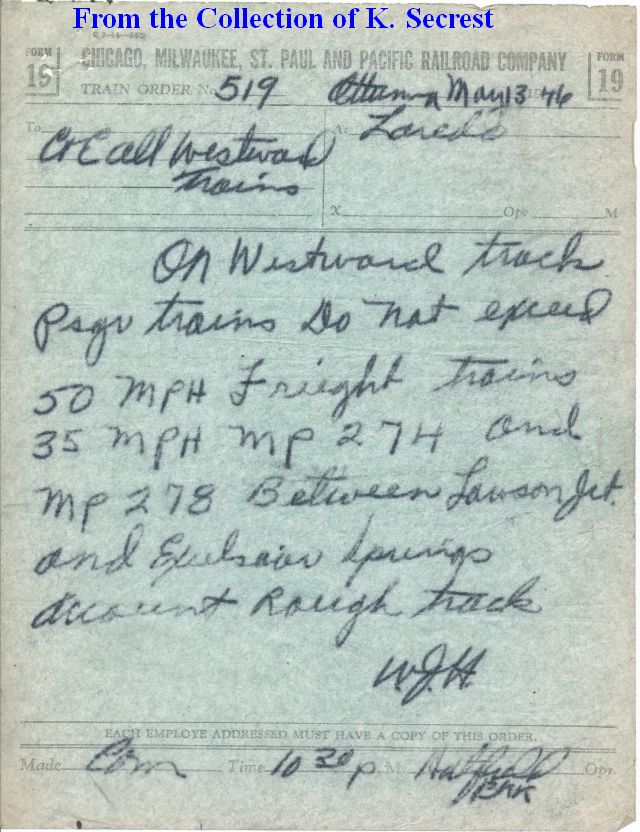 From the Collection of K. Secrest
FORM 19
CHICAGO, MILWAUKEE, ST. PAUL AND PACIFIC RAILROAD COMPANY
FORM 19
TRAIN ORDER No. 519 Ottumwa May 13 1946
To C&E all Westward At Laredo
trains
X Opr. M
On Westward track
Psgr trains Do not exceed
50 MPH Frieght trains
35 MPH MP 274 and
MP 278 Between Lawson Jct.
and Excelsior Springs
account Rough track
W.J.H.
EACH EMPLOYE ADDRESSED MUST HAVE A COPY OF THIS ORDER.
Made Com Time 10 30 p. M. Hatfield Opr